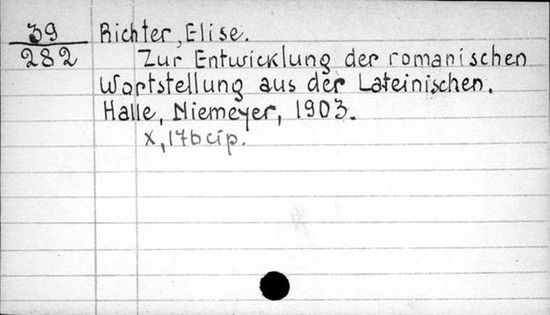 39
282
Richter, Elise.
Zur Entwicklung der romanischen
Wortstellung aus der Lateinischen.
Halle, Niemeyer, 1903.
X, 176 cip.